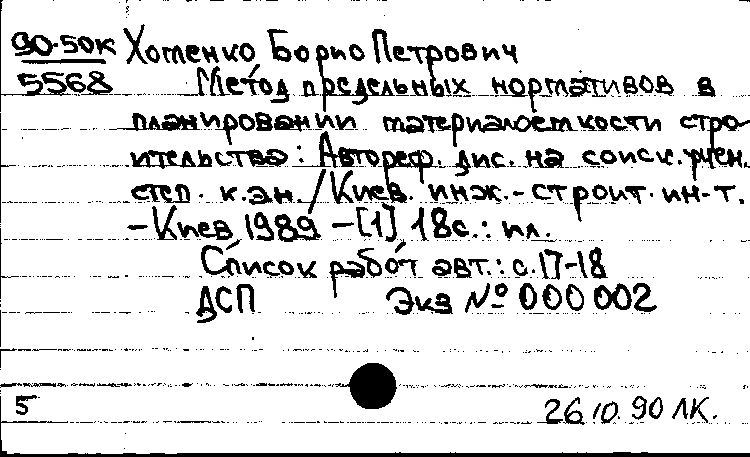 90-50к Хоменко Борис Петрович
5568 Метод предельных нормативов в
планировании материалоемкости стро-
ительства: Автореф. дис. на соиск. учен.
степ. к.эн. / Киев. инж.-строит. ин-т.
-Киев, 1989 -[1] 18с.: ил.
Список работ авт.: с.17-18
ДСП Экз № 000 002
5 26.10.90 ЛК.